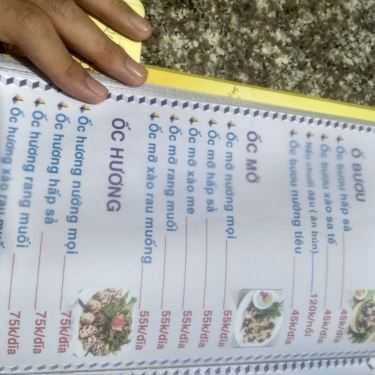 Ố BƯƠU
Ốc bươu hấp sả 45k/dĩa
Ốc bươu xào sa tế 45k/dĩa
Nấu chuối đậu ( ăn bún) 120k/nồi
Ốc bươu nướng tiêu 45k/dĩa
ỐC MỠ
Ốc mỡ nướng mọi 55k/dĩa
Ốc mỡ hấp sả 55k/dĩa
Ốc mỡ xào me 55k/dĩa
Ốc mỡ rang muối 55k/dĩa
Ốc mỡ xào rau muống 55k/dĩa
ỐC HƯƠNG
Ốc hương nướng mọi 75k/dĩa
Ốc hương hấp sả 75k/dĩa
Ốc hương rang muối 75k/dĩa
Ốc hương xào rau 75k/dĩa